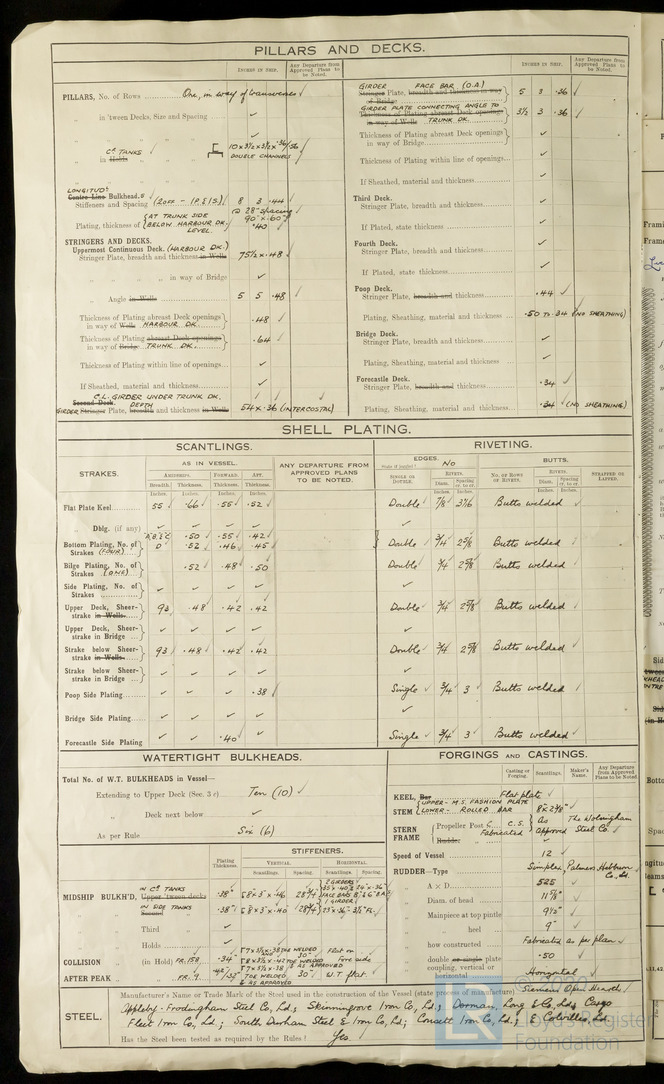 PILLARS AND DECKS.
INCHES IN SHIP.
Any Departure from Approved Plans to be Noted.
PILLARS, No. of Rows One, in way of transverses
in 'tween Decks, Size and Spacing
Cr. TANKS
in Holds 10 x 3½ x 3½ x .36/.36
DOUBLE CHANNELS
LONGITUDL
Centre Line Bulkhead.S
Stiffeners and Spacing (2 OFF - (P. & S.) 8 3 .44
@ 28" spacing
Plating, thickness of (AT TRUNK SIDE 90" x .60"
BELOW HARBOUR DK. .40
LEVEL.
STRINGERS AND DECKS.
Uppermost Continuous Deck. (HARBOUR DK.)
Stringer Plate, breadth and thickness in Wells 75½ x .48
in way of Bridge
Angle in Wells 5 5 .48
Thickness of Plating abreast Deck openings
in way of Wells HARBOUR DK. .48
Thickness of Plating abreast Deck openings
in way of Bridge TRUNK DK. .64
Thickness of Plating within line of openings
If Sheathed, material and thickness
C.L. GIRDER UNDER TRUNK DK.
Second Deck. DEPTH
GIRDER Stringer Plate, breadth and thickness in Wells 54 x .36 (INTERCOSTAL)
INCHES IN SHIP.
Any Departure from Approved Plans to be Noted.
GIRDER FACE BAR (O.A)
Stringer Plate, breadth and thickness in way of Bridge 5 3 .36
GIRDER PLATE CONNECTING ANGLE TO
Thickness of Plating abreast Deck openings
in way of Wells TRUNK DK. 3½ 3 .36
Thickness of Plating abreast Deck openings
in way of Bridge
Thickness of Plating within line of openings
If Sheathed, material and thickness
Third Deck.
Stringer Plate, breadth and thickness
If Plated, state thickness
Fourth Deck.
Stringer Plate, breadth and thickness
If Plated, state thickness
Poop Deck.
Stringer Plate, breadth and thickness .44
Plating, Sheathing, material and thickness .50 TO .34 (NO SHEATHING)
Bridge Deck.
Stringer Plate, breadth and thickness
Plating, Sheathing, material and thickness
Forecastle Deck.
Stringer Plate, breadth and thickness .34
Plating, Sheathing, material and thickness .34 (NO SHEATHING)
SHELL PLATING.
SCANTLINGS.
RIVETING.
STRAKES.
AS IN VESSEL.
AMIDSHIPS. FORWARD. AFT.
Breadth Thickness. Thickness. Thickness.
Inches. Inches. Inches. Inches.
ANY DEPARTURE FROM APPROVED PLANS TO BE NOTED.
EDGES.
State if joggled? No
BUTTS.
SINGLE OR DOUBLE.
RIVETS.
Diam. Spacing cr. to cr.
NO. OF ROWS OF RIVETS.
RIVETS.
Diam. Spacing cr. to cr.
STRAPPED OR LAPPED.
Flat Plate Keel 55 .66 .55 .52 Double 7/8 Butts welded
Dblg. (if any)
Bottom Plating, No. of Strakes (FOUR) A, B, & C .50 .55 .42
D .52 .46 .45 Double 3/4 2⅝ Butts welded
Bilge Plating, No. of Strakes (ONE) .52 .48 .50 Double 3/4 2⅝ Butts welded
Side Plating, No. of Strakes
Upper Deck, Sheerstrake in Wells 93 .48 .42 .42 Double 3/4 2⅝ Butts welded
Upper Deck, Sheerstrake in Bridge
Strake below Sheerstrake in Wells 93 .48 .42 .42 Double 3/4 2⅝ Butts welded
Strake below Sheerstrake in Bridge
Poop Side Plating .38 Single 3/4 3 Butts welded
Bridge Side Plating
Forecastle Side Plating .40 Single 3/4 3 Butts welded
WATERTIGHT BULKHEADS.
Total No. of W.T. BULKHEADS in Vessel—
Extending to Upper Deck (Sec. 3 c) Ten (10)
Deck next below
As per Rule Six (6)
STIFFENERS.
Plating Thickness.
VERTICAL. HORIZONTAL.
Scantlings. Spacing. Scantlings. Spacing.
MIDSHIP BULKH'D, IN Cr TANKS
Upper 'tween decks .38"
IN SIDE TANKS
Second .38"
Third
Holds
COLLISION (in Hold) FR. 158 .34"
AFTER PEAK FR. 9
FORGINGS AND CASTINGS.
Casting or Forging. Scantlings. Maker's Name. Any Departure from Approved Plans to be Noted.
KEEL, Bar Flat plate
STEM UPPER - M.S. FASHION PLATE
LOWER - ROLLED BAR
STERN FRAME Propeller Post C.S. Fabricated As Approved The Wolsingham Steel Co.
Rudder
Speed of Vessel 12
RUDDER—Type Simplex, Palmers Hebburn Co, Ld.
A × D 525
Diam. of head 11⅝"
Mainpiece at top pintle 9½"
heel 9"
how constructed Fabricated as per plan
double or single plate .50
coupling, vertical or horizontal Horizontal
STEEL.
Manufacturer's Name or Trade Mark of the Steel used in the construction of the Vessel (state process of manufacture) Siemens Open Hearth
Appleby-Frodingham Steel Co, Ld; Skinningrove Iron Co, Ld; Dorman, Long & Co, Ld; Cargo
Fleet Iron Co, Ld; South Durham Steel & Iron Co, Ld; Consett Iron Co, Ld; & Colvilles, Ld.
Has the Steel been tested as required by the Rules? Yes.
Lloyd's Register
Foundation